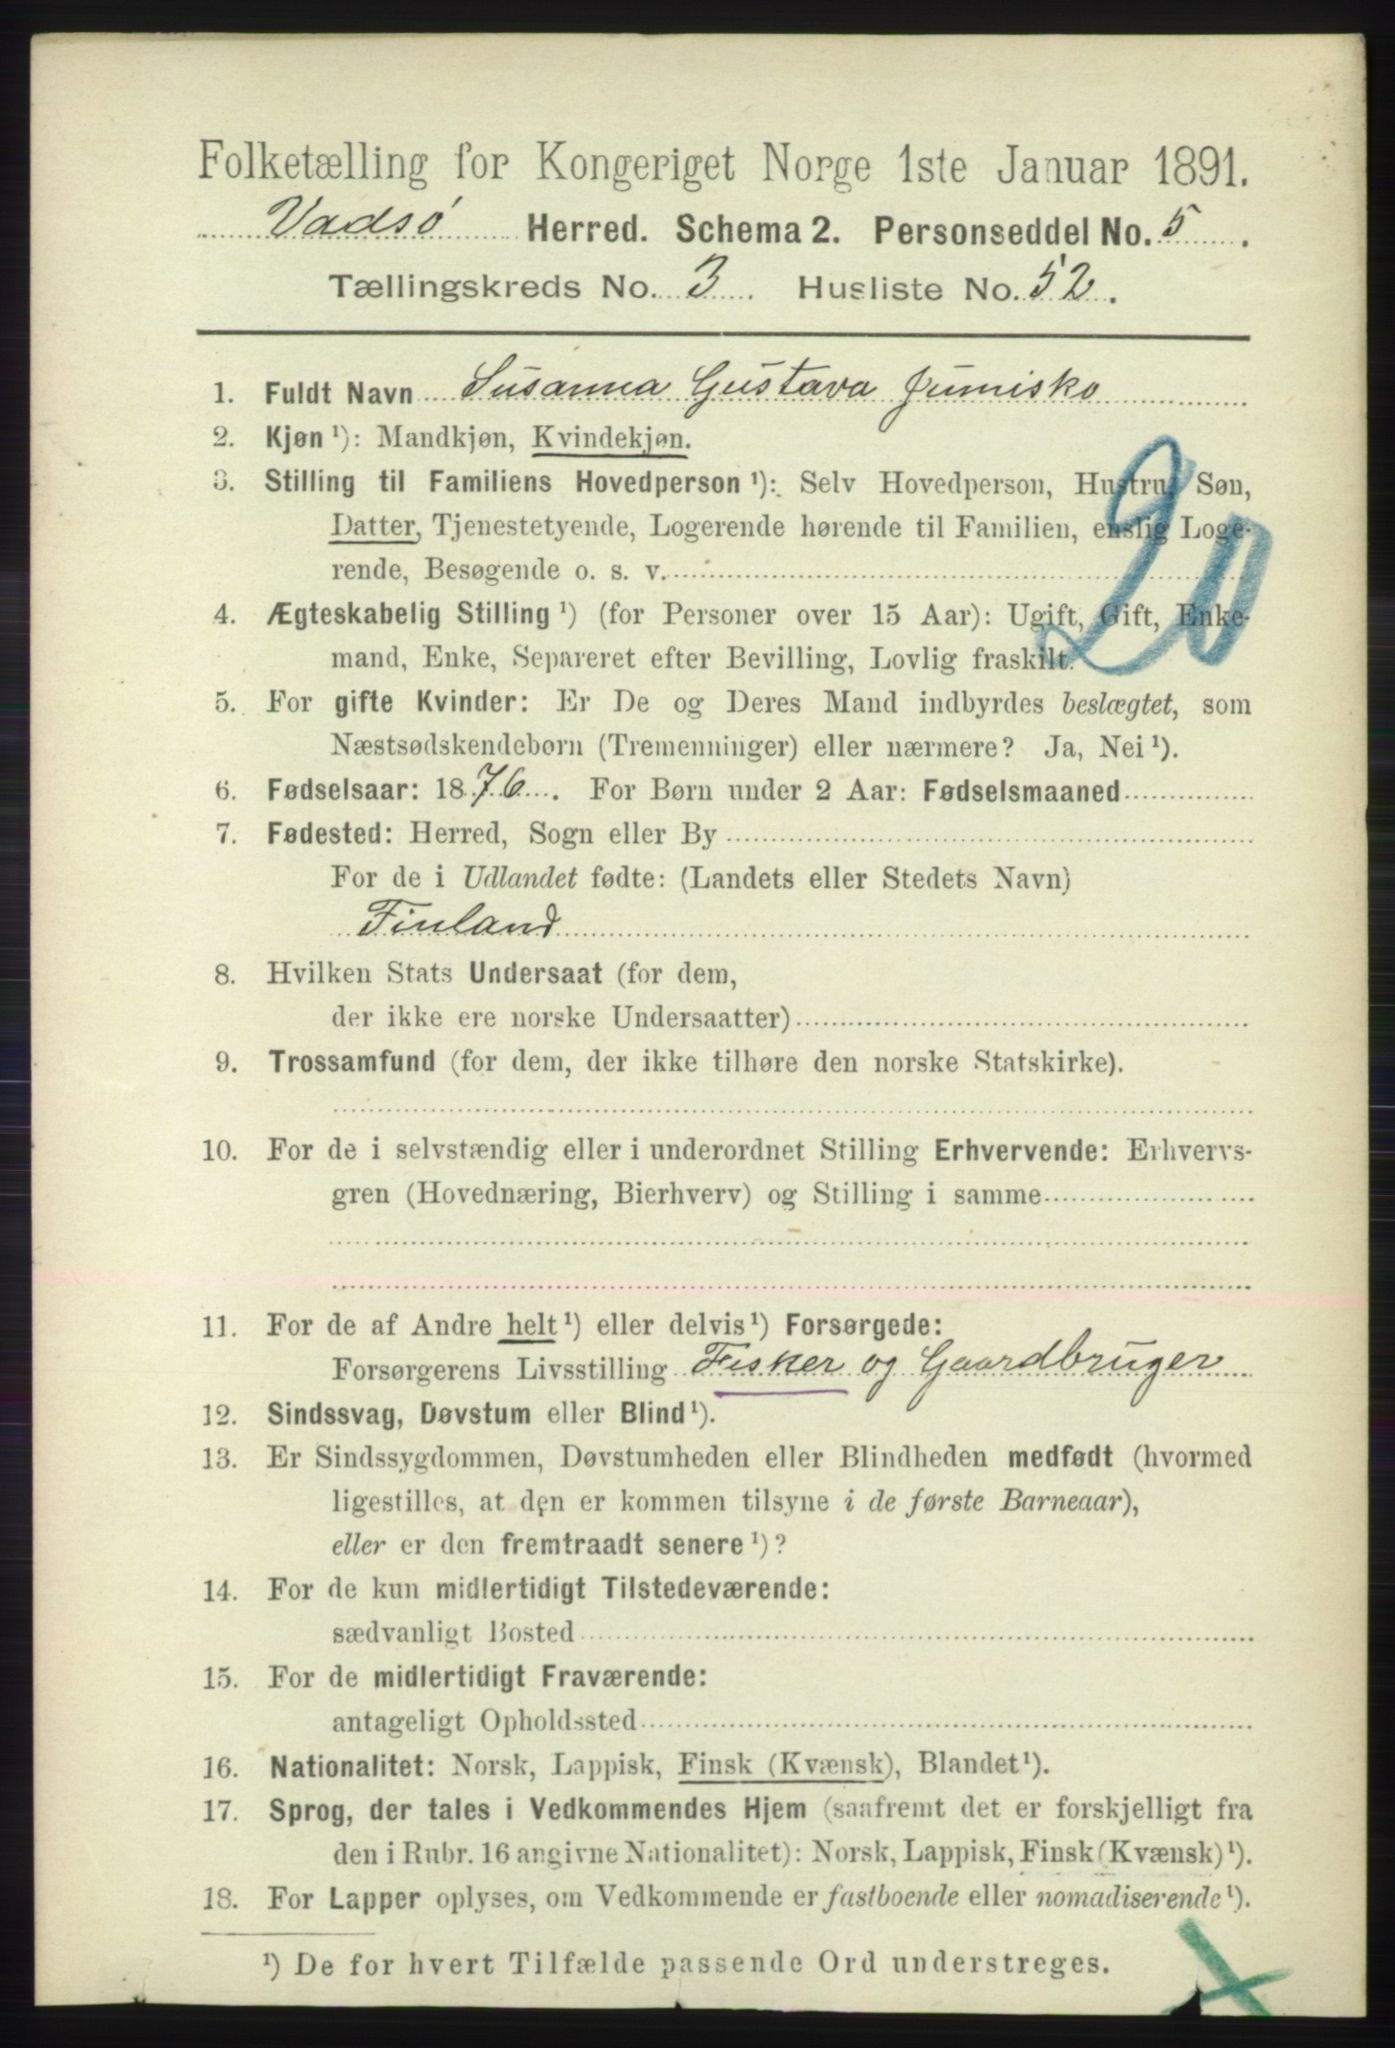 Folketælling for Kongeriget Norge 1ste Januar 1891.
Vadsö Herred. Schema 2. Personseddel No. 5.
Tællingskreds No. 3. Husliste No. 52.
1. Fuldt Navn Susanna Gustava Jumisko
2. Kjøn ¹): Mandkjøn, Kvindekjøn.
3. Stilling til Familiens Hovedperson ¹): Selv Hovedperson, Hustru, Søn,
Datter, Tjenestetyende, Logerende hørende til Familien, enslig Loge-
rende, Besøgende o. s. v.
20
4. Ægteskabelig Stilling ¹) (for Personer over 15 Aar): Ugift, Gift, Enke-
mand, Enke, Separeret efter Bevilling, Lovlig fraskilt.
5. For gifte Kvinder: Er De og Deres Mand indbyrdes beslægtet, som
Næstsødskendebørn (Tremenninger) eller nærmere? Ja, Nei ¹).
6. Fødselsaar: 1876. For Børn under 2 Aar: Fødselsmaaned
7. Fødested: Herred, Sogn eller By
For de i Udlandet fødte: (Landets eller Stedets Navn)
Finland
8. Hvilken Stats Undersaat (for dem,
der ikke ere norske Undersaatter)
9. Trossamfund (for dem, der ikke tilhøre den norske Statskirke).
10. For de i selvstændig eller i underordnet Stilling Erhvervende: Erhvervs-
gren (Hovednæring, Bierhverv) og Stilling i samme
11. For de af Andre helt ¹) eller delvis ¹) Forsørgede:
Forsørgerens Livsstilling Fisker og Gaardbruger
12. Sindssvag, Døvstum eller Blind ¹).
13. Er Sindssygdommen, Døvstumheden eller Blindheden medfødt (hvormed
ligestilles, at den er kommen tilsyne i de første Barneaar),
eller er den fremtraadt senere ¹)?
14. For de kun midlertidigt Tilstedeværende:
sædvanligt Bosted
15. For de midlertidigt Fraværende:
antageligt Opholdssted
16. Nationalitet: Norsk, Lappisk, Finsk (Kvænsk), Blandet ¹).
17. Sprog, der tales i Vedkommendes Hjem (saafremt det er forskjelligt fra
den i Rubr. 16 angivne Nationalitet): Norsk, Lappisk, Finsk (Kvænsk) ¹).
18. For Lapper oplyses, om Vedkommende er fastboende eller nomadiserende ¹).
¹) De for hvert Tilfælde passende Ord understreges.